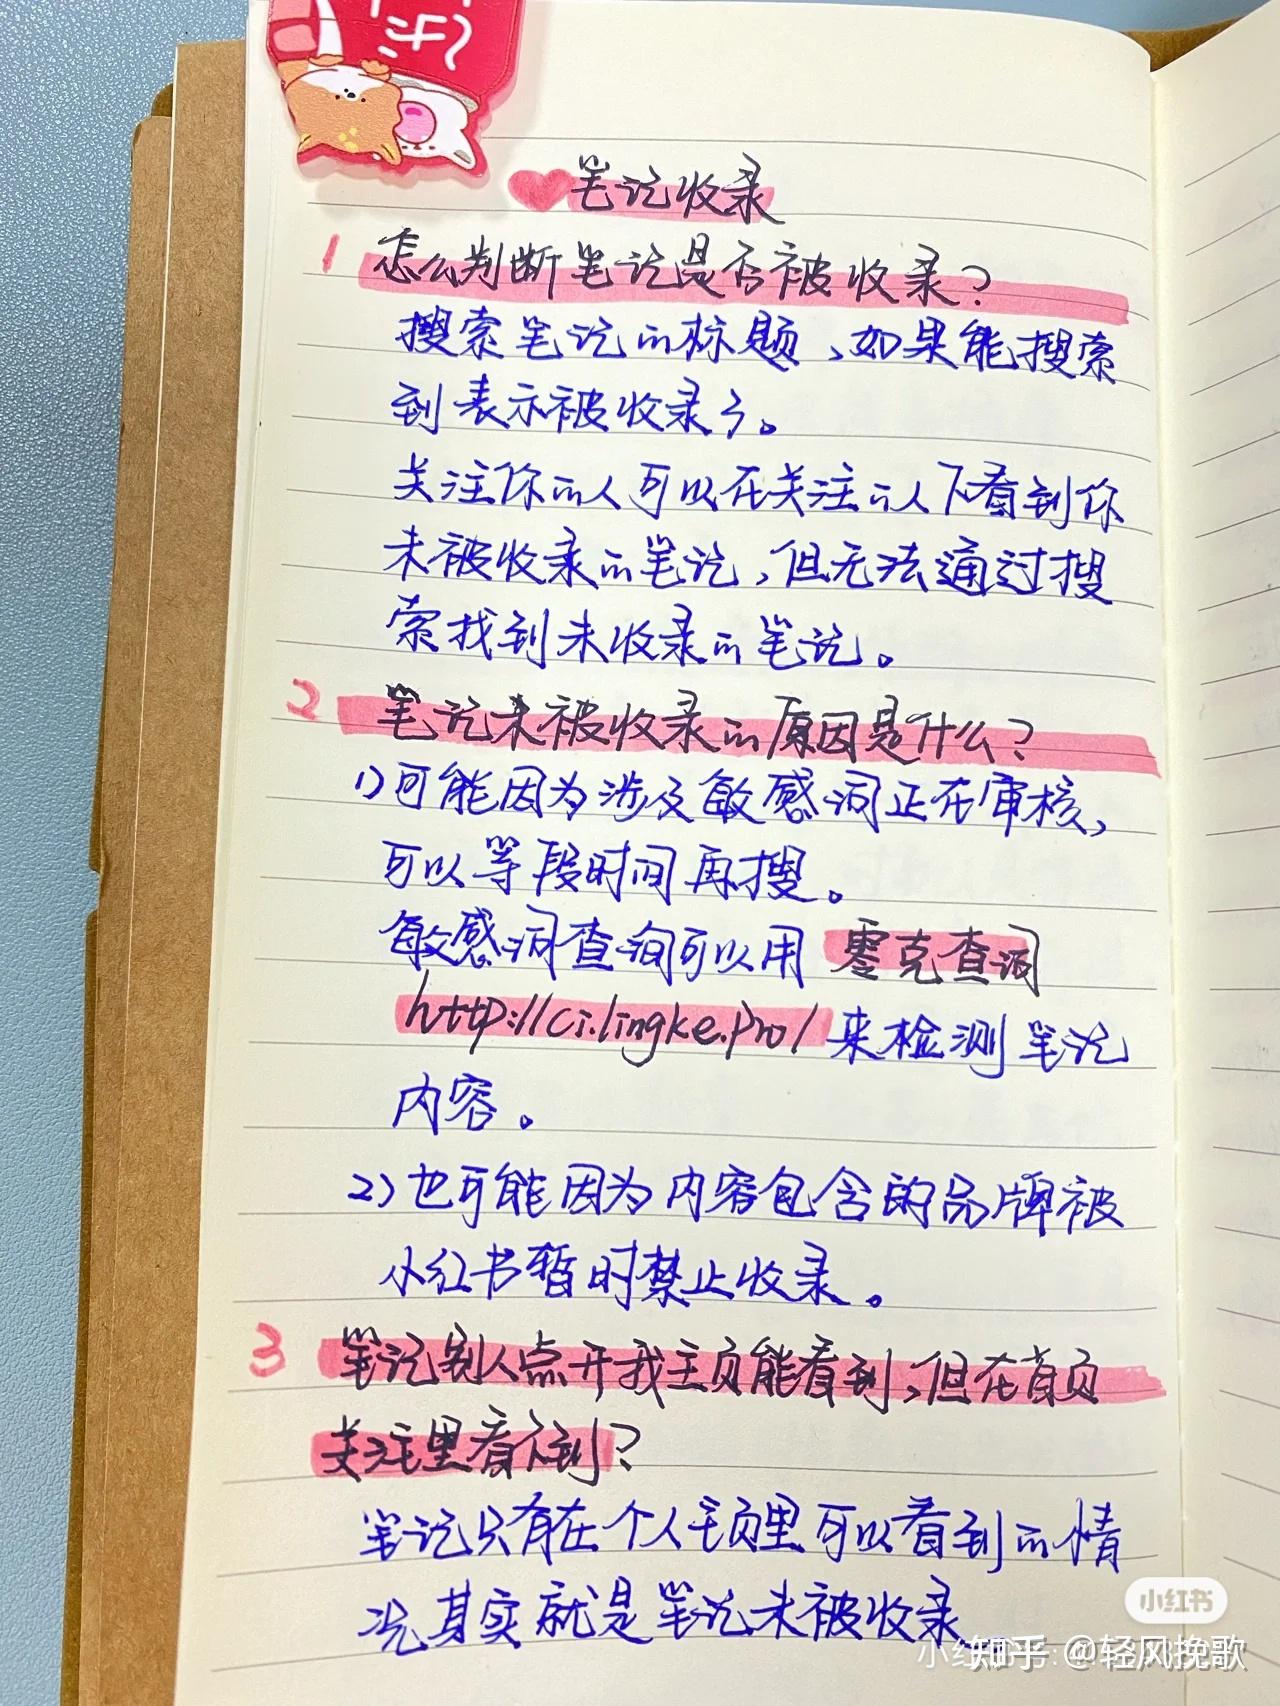 笔记收录
1 怎么判断笔记是否被收录？
搜索笔记的标题，如果能搜索
到表示被收录了。
关注你的人可以在关注的人下看到你
未被收录的笔记，但无法通过搜
索找到未收录的笔记。
2 笔记未被收录的原因是什么？
1)可能因为涉及敏感词正在审核，
可以等段时间再搜。
敏感词查询可以用 零克查词
http://ci.lingke.pro/ 来检测笔记
内容。
2)也可能因为内容包含的品牌被
小红书暂时禁止收录。
3 笔记别人点开我主页能看到，但在首页
关注里看不到？
笔记只有在个人主页里可以看到的情
况其实就是笔记未被收录
小红书
知乎 @轻风挽歌